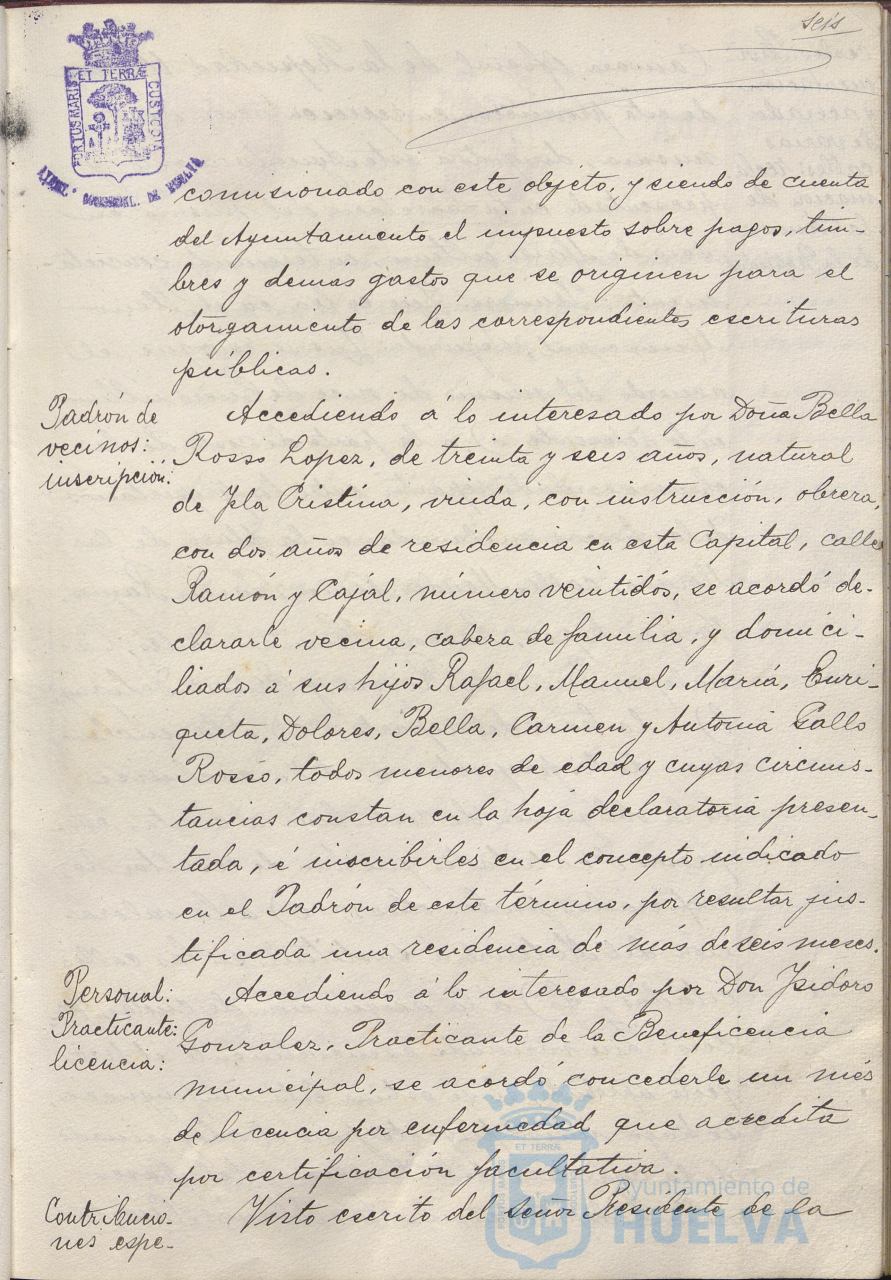 seis
PORTUS MARIS
ET TERRÆ
CUSTODIA
AYUNT. CONSTITUCIONAL DE HUELVA
comisionado con este objeto, y siendo de cuenta
del Ayuntamiento el impuesto sobre pagos, tim-
bres y demás gastos que se originen para el
otorgamiento de las correspondientes escrituras
públicas.
Padrón de
vecinos:
inscripción:
Accediendo á lo interesado por Doña Bella
Rosso Lopez, de treinta y seis años, natural
de Isla Cristina, viuda, con instrucción, obrera,
con dos años de residencia en esta Capital, calle
Ramón y Cajal, número veintidós, se acordó de-
clararle vecina, cabeza de familia, y domici-
liados á sus hijos Rafael, Manuel, María, Enri-
queta, Dolores, Bella, Carmen y Antonia Gallo
Rosso, todos menores de edad y cuyas circuns-
tancias constan en la hoja declaratoria presen-
tada, é inscribirles en el concepto indicado
en el Padrón de este término, por resultar jus-
tificada una residencia de más de seis meses.
Personal:
Practicante:
licencia:
Accediendo á lo interesado por Don Isidoro
Gonzalez, Practicante de la Beneficencia
municipal, se acordó concederle un més
de licencia por enfermedad que acredita
por certificación facultativa.
Contribucio-
nes espe-
Visto escrito del señor Presidente de la
ET TERRÆ
Ayuntamiento de
HUELVA